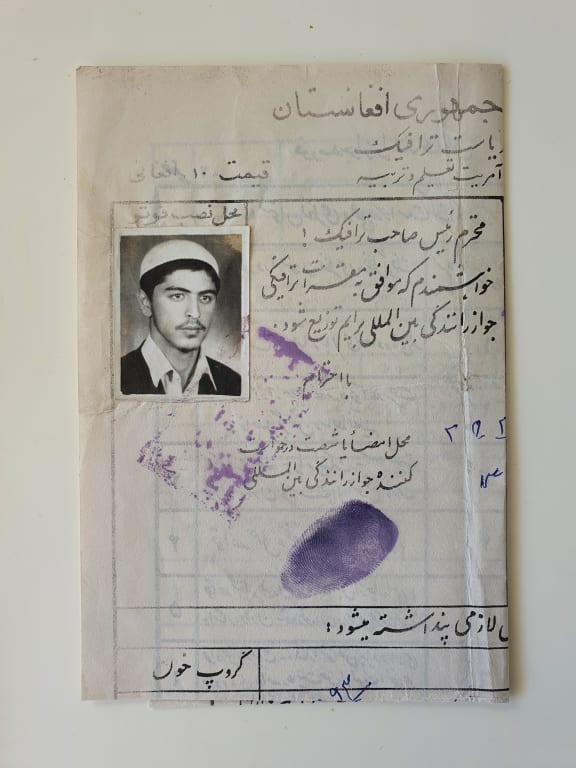 جمهوری افغانستان
ریاست ترافیک
آمریت تعلیم و تربیه
قیمت ۱۰ افغانی
محل نصب فوتو
محترم رئیس صاحب ترافیک !
خواهشمندم که موافق به مقررات ترافیکی
جواز رانندگی بین المللی برایم توزیع شود.
با احترام
محل امضأ یا شصت درخواست
کننده جواز رانندگی بین المللی
لازمی پنداشته میشود :
گروپ خون